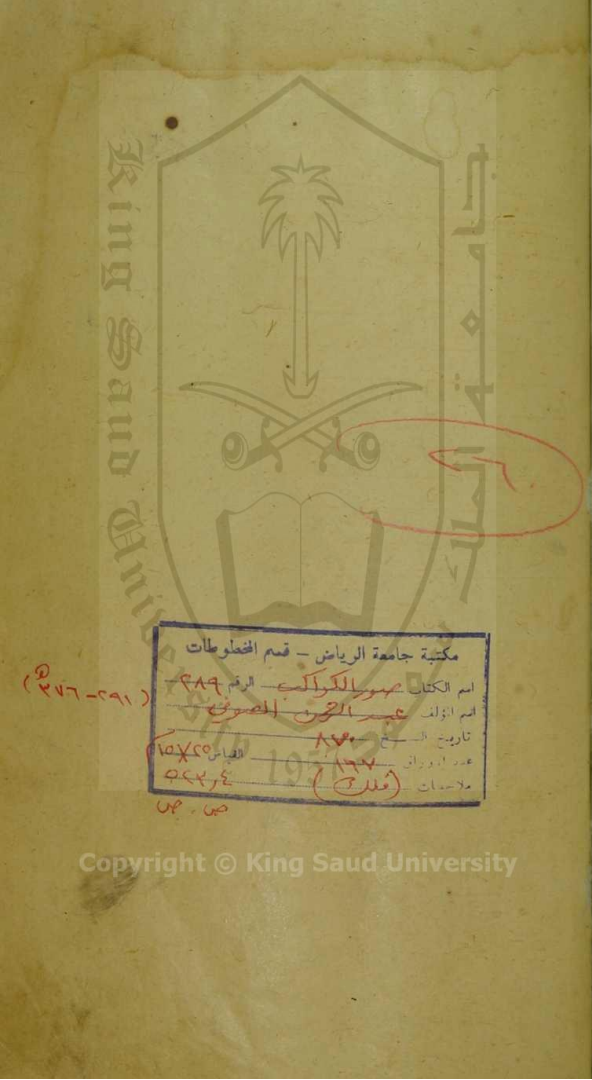 King Saud University
جامعة الملك سعود
1957
مكتبة جامعة الرياض - قسم المخطوطات
اسم الكتاب صور الكواكب الرقم ٢٨٩
اسم المؤلف عبد الرحمن الصوفي
(٢٩١-٣٧٦ھ)
تاريخ النسخ ٨٧٠
عدد الأوراق ١٦٧ القياس ٢٥×١٥
ملاحظات (فلك) ٥٢٣,٤
ص. ص
Copyright © King Saud University